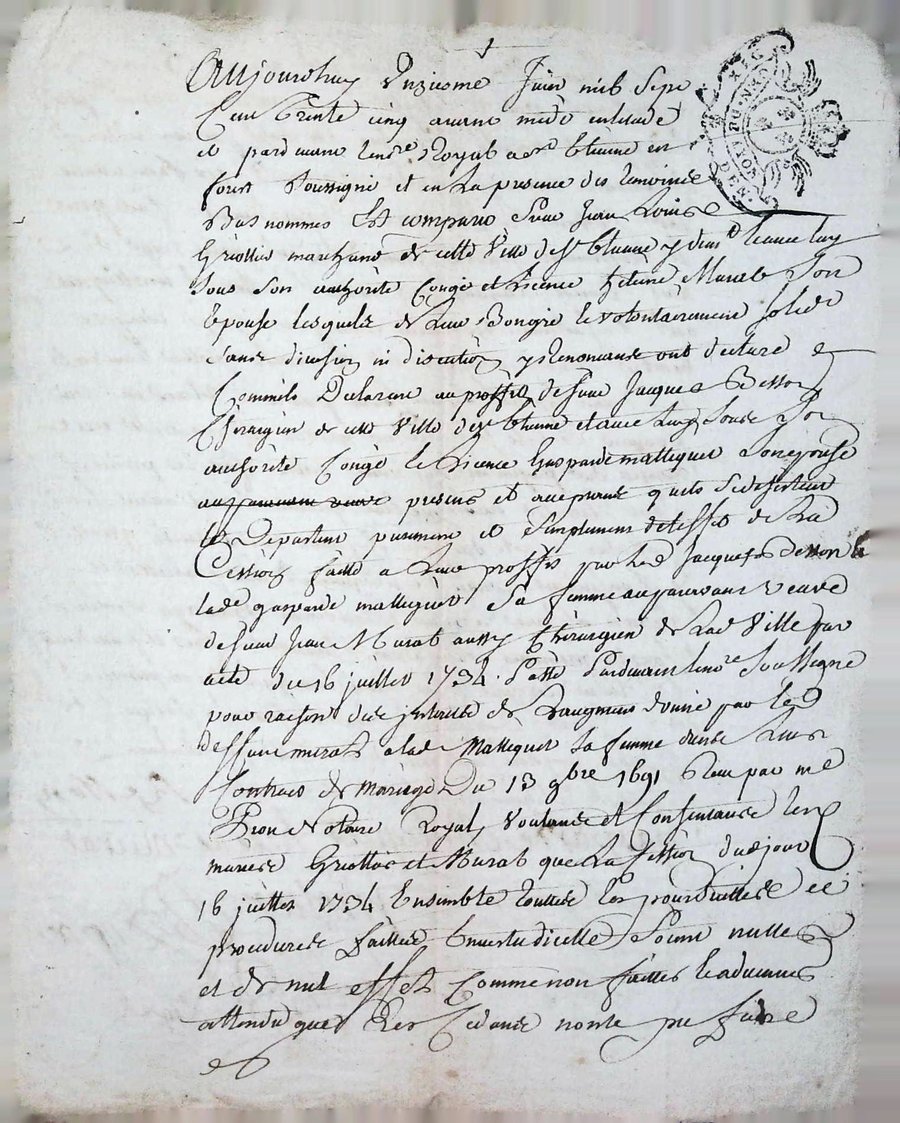 Aujourdhuy unziesme Juin mil sept
Cent trente cinq avant midy
et pardevant royal a st Etienne en
forest soussigné et en la presence des temoins
Bas nommes Est comparu Sieur Jean Louis
Griottier marchand de cette ville de st Etienne y dem^t
sous son authorité Congé et Licence Murat Son
Epouse lesquels de Leur Bongré et volontairement solid
sans division ni discution y Renonceant ont declaré
Comme au proffit de sieur Jacques Besson
Chirurgien de cette Ville de st Etienne et avec luy sous Son
authorité Congé et Licence Gasparde Malleguet Son epouse
presens et acceptans quils se desistent
et Departent purement et simplement de leffet de La
Cession faitte a Leur proffit par led Jacques Besson &
lad^e gasparde malleguet Sa femme auparavant veuve
de sieur Jean Murat aussy Chirurgien de Lad Ville par
acte du 16 juillet 1734. Passé Pardevant le no^re Soussigné
pour raison de de Laugment donné par led
deffunt murat a lad^e Malleguet sa femme dans Leur
Contract de mariage Du 13 9bre 1691 Receu par me
Notaire Royal, voulants et Consentants les
mariés Griottier et Murat que La Cession dud jour
16 juillet 1734 Ensemble touttes Les poursuittes et
procedures faittes en vertu dicelle soient nulles
et de nul effet Comme non faittes
attendu que Les Cedants nonts pu faire